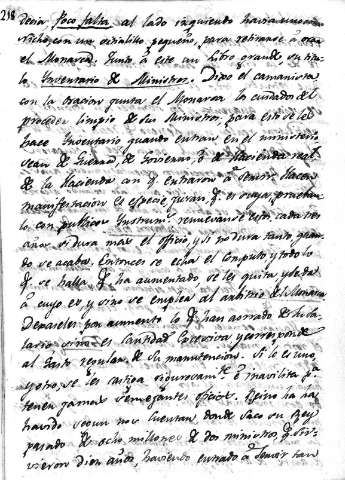 218 decia Poco falta al lado izquierdo havia un
nicho, con un sitialillo pequeño, para retirarse á orar
el Monarca. Junto á este un libro grande su titu-
lo Inventario de Ministros. Dixo el camarista
con la oracion junta el Monarca lo cuidadoso del
proceder limpio de sus Ministros, para esto se les
hace Inventario quando entran en el ministerio
sean de Guerra, de Govierno, ó de Hacienda
de la Hacienda con q. entraron á servir. Hacen
manifestacion es especie juran, q. es suya, prueban
lo con publicos Instrum.tos renuevase esto cada tres
años si dura mas el oficio, y si no dura tanto, quan-
do se acaba. Entonces se echa el Computo, y todo lo
q. se halla q. ha aumentado se les quita y se da
á cuyo es, y sino se emplea al arbitrio del Monarca
por aumento lo q. han aorrado de su Sa-
lario sino es cantidad excesiva y corresponde
al Gasto regular de su manutencion. Si lo es uno,
y otro, se les castiga rigurosam.te é inavilita p.a
tener jamas semejantes oficios. Reino ha
havido segun nos cuentan donde saco un Rey
pasado de ocho millones de dos ministros, q. sir-
vieron diez años, haviendo entrado á servir tan